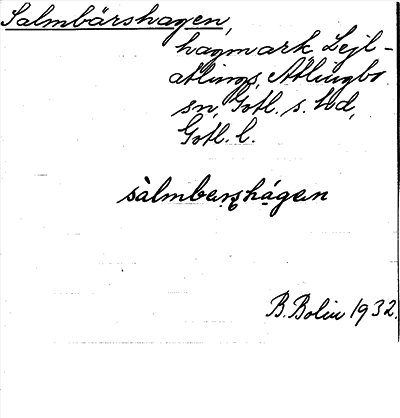 Salmbärshagen,
hagmark Lejl-
atlings, Atlingbo
sn, Gotl. s. hd,
Gotl. l.
sàlmbɐrshágɐn
B. Bolin 1932.